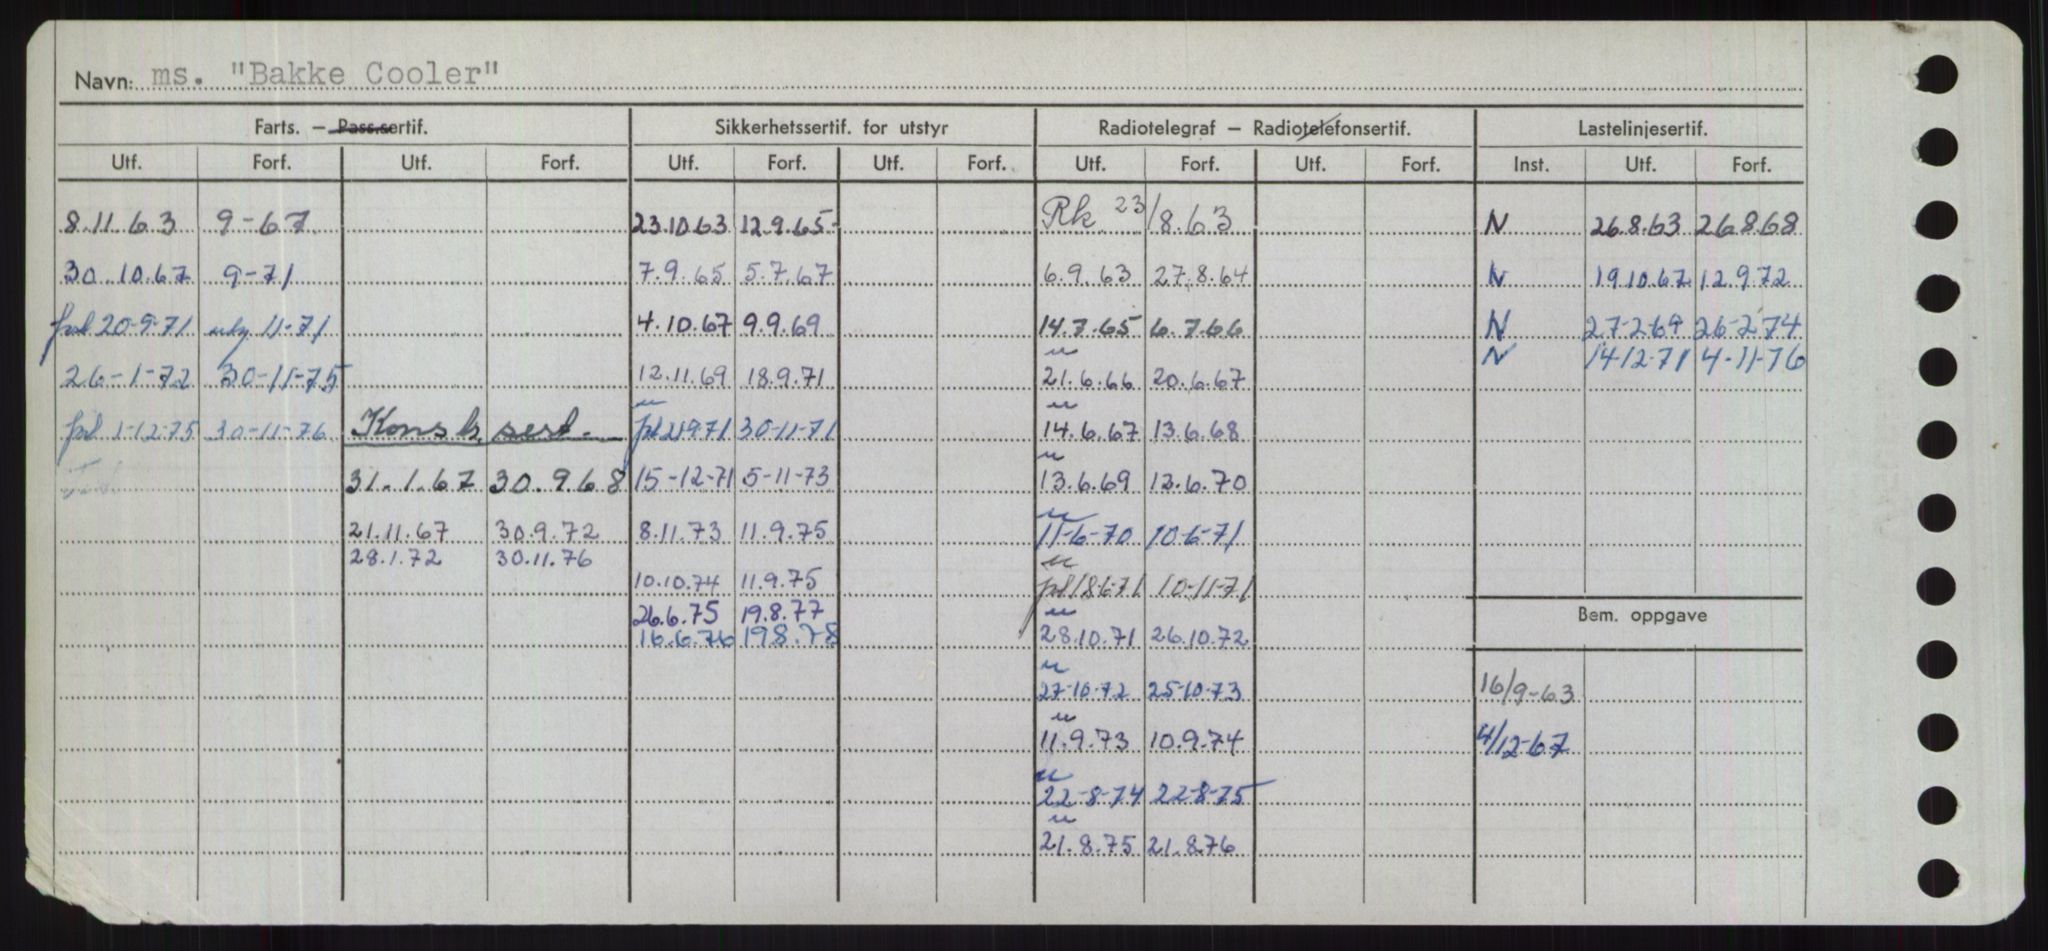 Navn: ms. "Bakke Cooler"
Farts. – Pass.sertif. Sikkerhetssertif. for utstyr Radiotelegraf – Radiotelefonsertif. Lastelinjesertif.
Utf. Forf. Utf. Forf. Utf. Forf. Utf. Forf. Utf. Forf. Utf. Forf. Inst. Utf. Forf.
8.11.63 9-67 23.10.63 12.9.65 Rk 23/8.63 N 26.8.63 26.8.68
30.10.67 9-71 7.9.65 5.7.67 6.9.63 27.8.64 N 19.10.67 12.9.72
20-9-71 11-71 4.10.67 9.9.69 14.7.65 6.7.66 N 27-2-69 26-2-74
N 14-12-71 4-11-76
26-1-72 30-11-75 12.11.69 18.9.71 21.6.66 20.6.67
1-12-75 30-11-76 Konstr. sert. 21-9-71 30-11-71 14.6.67 13.6.68
31.1.67 30.9.68 15-12-71 5-11-73 13.6.69 12.6.70
21.11.67 30.9.72 8.11.73 11.9.75 11-6-70 10-6-71
28.1.72 30.11.76
10.10.74 11.9.75 18-6-71 10-11-71
26.6.75 19.8.77 Bem. oppgave
16.6.76 19.8.78 28.10.71 26.10.72
27-10-72 25-10-73 16/9-63
11.9.73 10.9.74 4/12-67
22-8-74 22-8-75
21.8.75 21.8.76